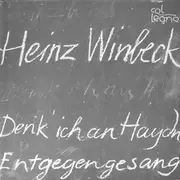 col
legno
Heinz Winbeck
Denk ich an Haydn
Entgegengesang